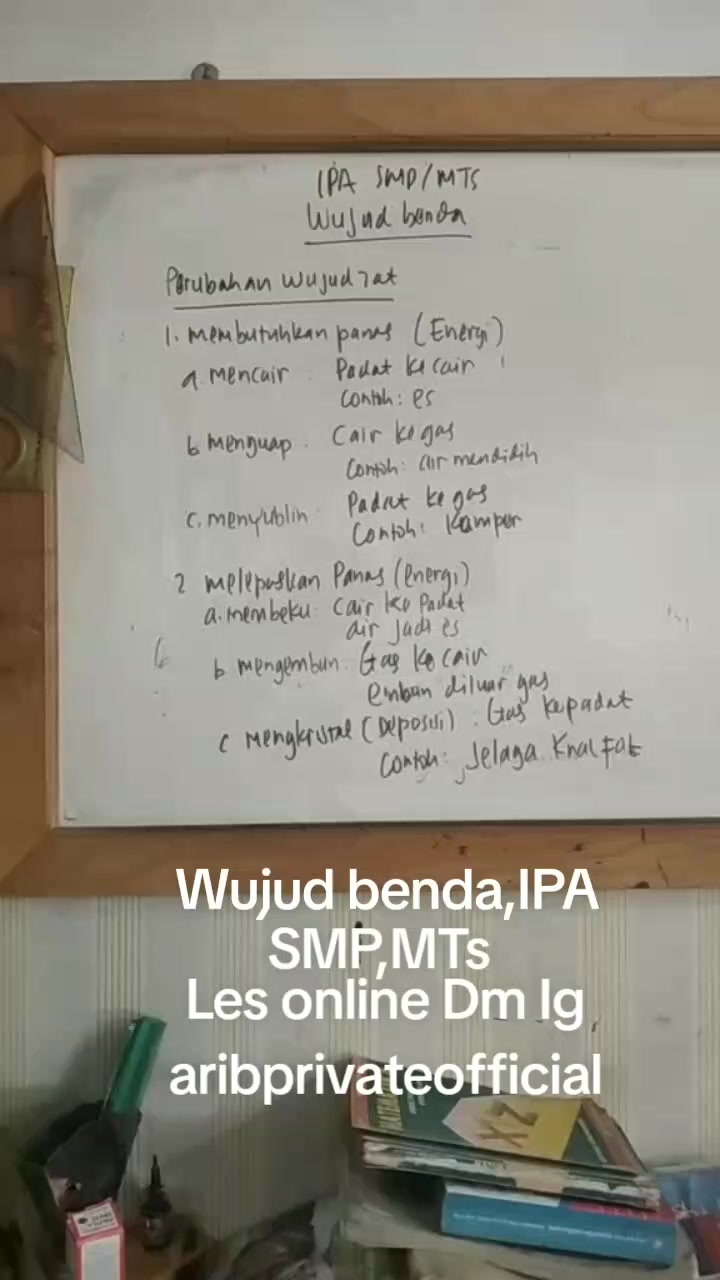 IPA SMP/MTS
Wujud benda
Perubahan wujud zat
1. membutuhkan panas (Energi)
a. mencair : Padat ke cair
Contoh: es
b menguap : Cair ke gas
Contoh: air mendidih
c. menyublin : Padat ke gas
Contoh: Kamper
2 melepaskan Panas (energi)
a. membeku : Cair ke Padat
air jadi es
b mengembun : Gas ke cair
embun diluar gas
c Mengkristal (Deposisi) : Gas kepadat
Contoh: Jelaga Knalpot
Wujud benda,IPA
SMP,MTs
Les online Dm Ig
aribprivateofficial